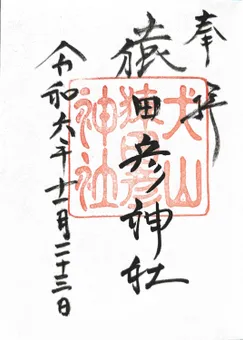 奉拝
猿田彦神社
犬山
猿田彦
神社
令和六年十二月二十三日